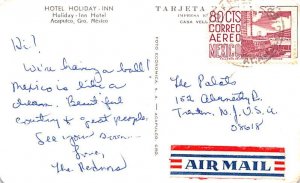 HOTEL HOLIDAY-INN
Holiday-Inn Hotel
Acapulco, Gro. Mexico
TARJETA
Hi!
We're having a ball!
Mexico is like a
dream. Beautiful
country & great people.
See you soon
Love,
The
FOTO ECONOMICA, S. A. - ACAPULCO, GRO.
80 CTS
CORREO
AEREO
MEXICO
The
152
Trenton, N.J. U.S.A
08618
AIR MAIL